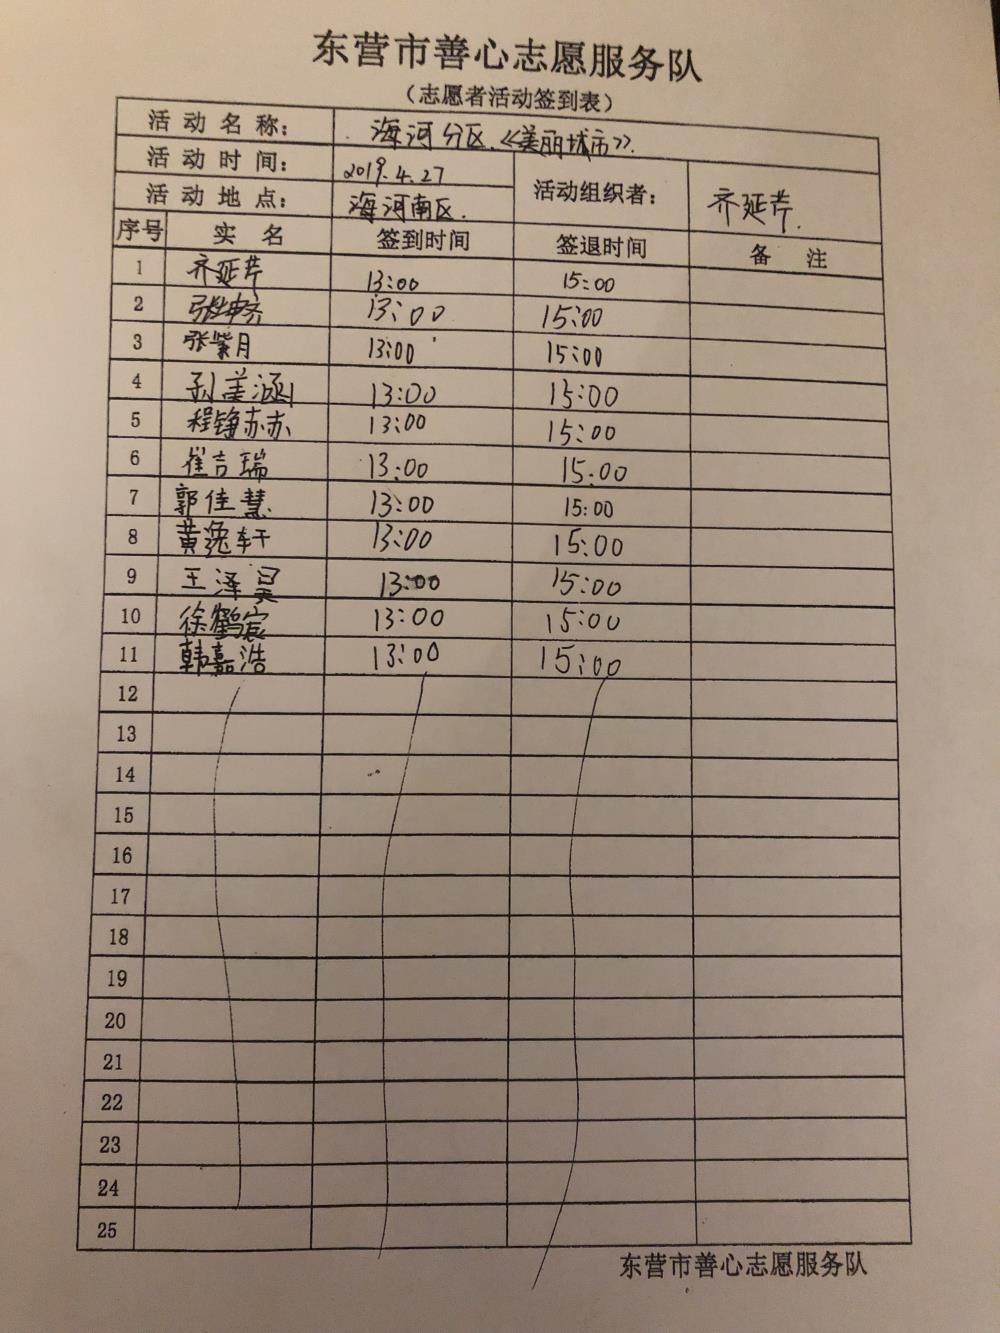 东营市善心志愿服务队
（志愿者活动签到表）
活动名称： 海河分区《美丽城市》.
活动时间： 2019.4.27 活动组织者： 齐延芹.
活动地点： 海河南区.
序号 实名 签到时间 签退时间 备注
1 齐延芹 13:00 15:00
2 13:00 15:00
3 张紫月 13:00 15:00
4 孙美涵 13:00 15:00
5 程铮赤赤 13:00 15:00
6 崔吉瑞 13:00 15:00
7 郭佳慧 13:00 15:00
8 黄逸轩 13:00 15:00
9 王泽昊 13:00 15:00
10 徐鹤宸 13:00 15:00
11 韩嘉浩 13:00 15:00
12
13
14
15
16
17
18
19
20
21
22
23
24
25
东营市善心志愿服务队